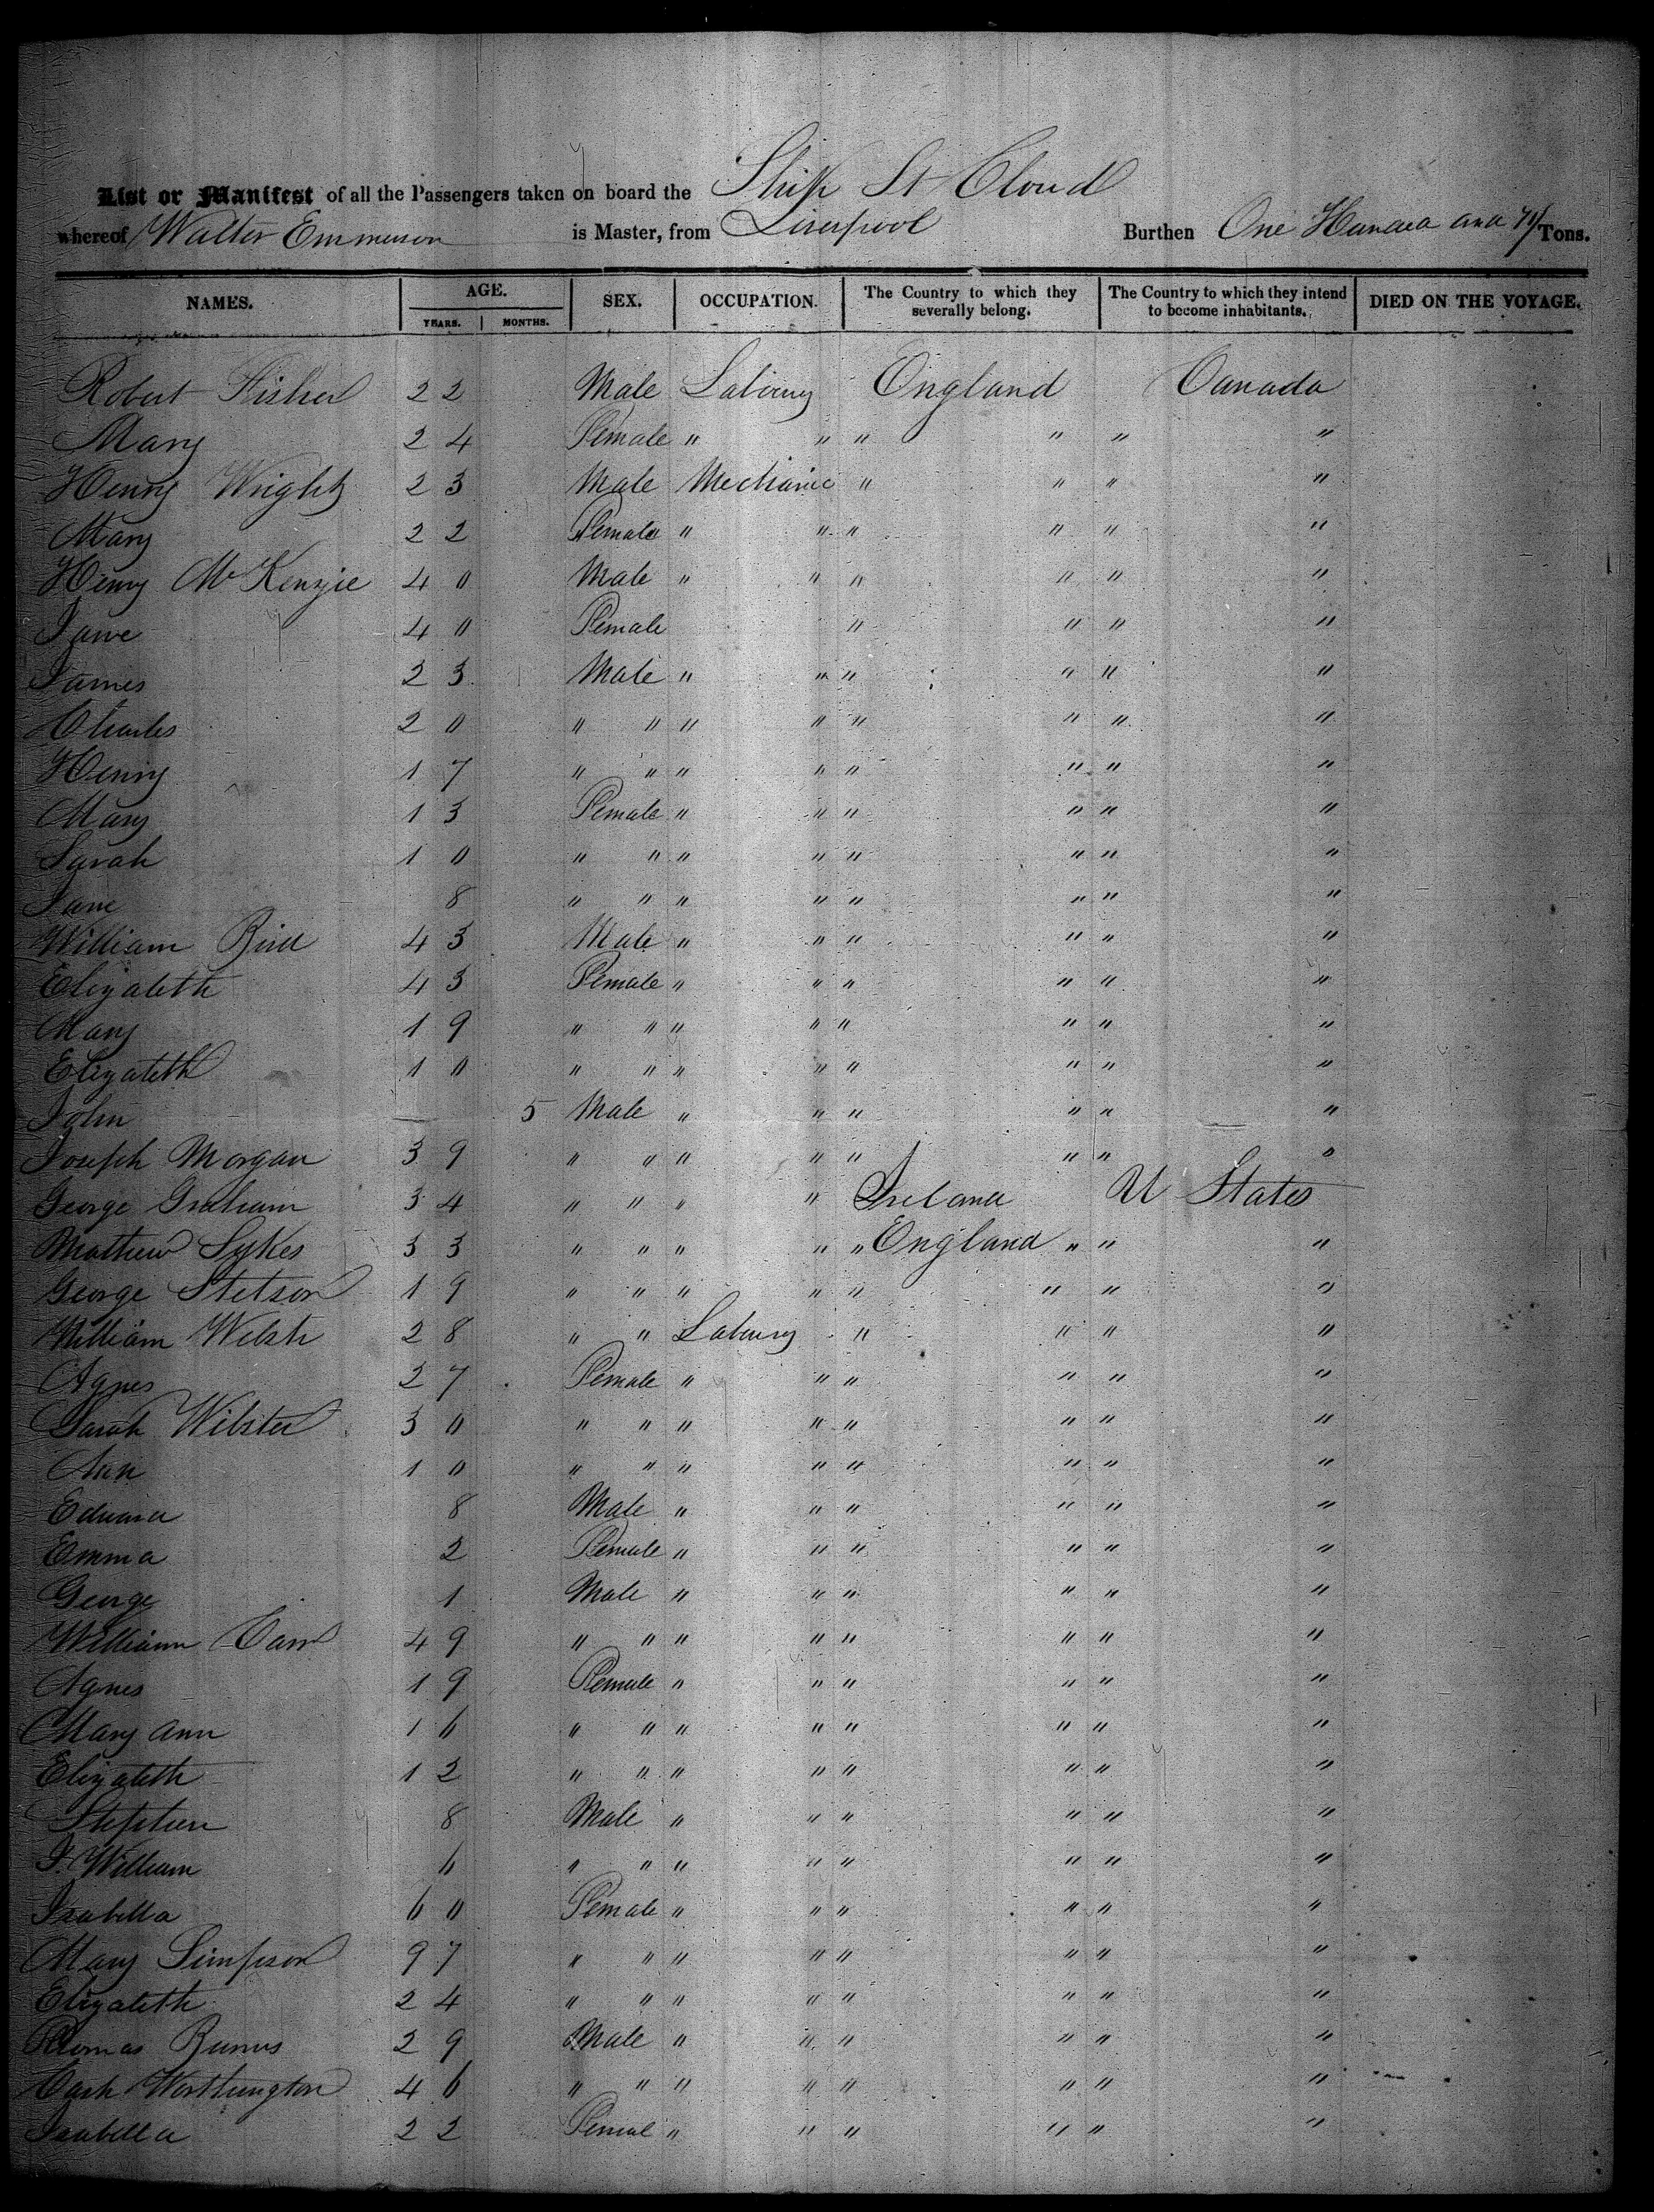 List or Manifest of all the Passengers taken on board the Ship St Cloud
whereof Walter Emmerson is Master, from Liverpool Burthen One Hundred and 71/ Tons.
NAMES. AGE. SEX. OCCUPATION. The Country to which they severally belong. The Country to which they intend to become inhabitants. DIED ON THE VOYAGE.
YEARS. MONTHS.
Robert Fisher 22 Male Labourer England Canada
Mary 24 Female " " " " " "
Henry Wright 23 Male Mechanic " " " "
Mary 22 Female " " " " " "
Henry McKenzie 40 Male " " " " " "
Jane 40 Female " " " "
James 23 Male " " " " " "
Charles 20 " " " " " " " "
Henry 17 " " " " " " " "
Mary 13 Female " " " " " "
Sarah 10 " " " " " " " "
Jane 8 " " " " " " " "
William Bird 43 Male " " " " " "
Elizabeth 43 Female " " " " " "
Mary 19 " " " " " " " "
Elizabeth 10 " " " " " " " "
John 5 Male " " " " " "
Joseph Morgan 39 " " " " " " " "
George Graham 34 " " " " Ireland U States
Mathew Sykes 33 " " " " " England " " "
George Stetson 19 " " " " " " " "
William Welsh 28 " " Labourer " " " "
Agnes 27 Female " " " " " "
Sarah Webster 30 " " " " " " " "
Ann 10 " " " " " " " "
Edward 8 Male " " " " " "
Emma 2 Female " " " " " "
George 1 Male " " " " " "
William Carr 49 " " " " " " " "
Agnes 19 Female " " " " " "
Mary Ann 16 " " " " " " " "
Elizabeth 12 " " " " " " " "
Stephen 8 Male " " " " " "
J. William 6 " " " " " " " "
Isabella 60 Female " " " " " "
Mary Simpson 97 " " " " " " " "
Elizabeth 24 " " " " " " " "
Thomas 29 Male " " " " " "
Worthington 46 " " " " " " " "
Isabella 22 Femal " " " " " "